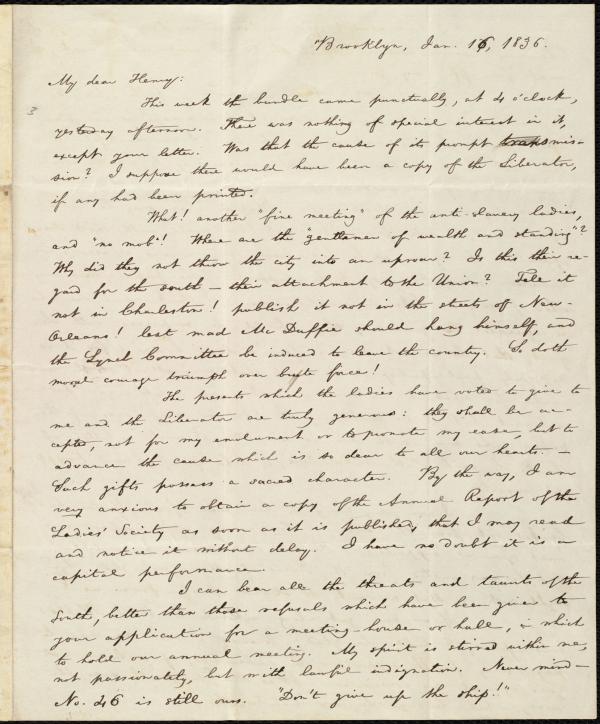 Brooklyn, Jan. 16, 1836.
My dear Henry:
This week the bundle came punctually, at 4 o'clock,
yesterday afternoon. There was nothing of special interest in it,
except your letter. Was that the cause of its prompt transmis-
sion? I suppose there would have been a copy of the Liberator,
if any had been printed.
What! another "fine meeting" of the anti-slavery ladies,
and "no mob"! Where are the "gentlemen of wealth and standing"?
Why did they not throw the city into an uproar? Is this their re-
gard for the south — their attachment to the Union? Tell it
not in Charleston! publish it not in the streets of New-
Orleans! lest mad Mc Duffie should hang himself, and
the Lynch Committee be induced to leave the country. So doth
moral courage triumph over brute force!
The presents which the ladies have voted to give to
me and the Liberator are truly generous: they shall be ac-
cepted, not for my emolument or to promote my ease, but to
advance the cause which is so dear to all our hearts. —
Such gifts possess a sacred character. By the way, I am
very anxious to obtain a copy of the Annual Report of the
Ladies' Society as soon as it is published, that I may read
and notice it without delay. I have no doubt it is a
capital performance.
I can bear all the threats and taunts of the
South, better than those refusals which have been given to
your application for a meeting-house or hall, in which
to hold our annual meeting. My spirit is stirred within me,
not passionately, but with lawful indignation. Never mind —
No. 46 is still ours. "Don't give up the ship!"